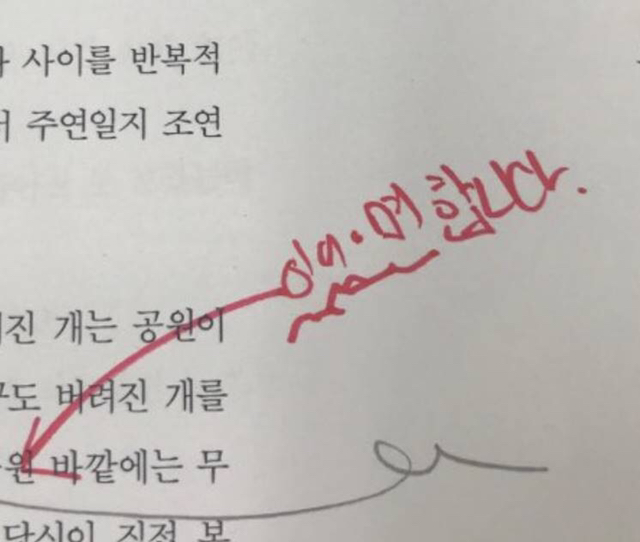 사이를 반복적
주연일지 조연
합니다.
진 개는 공원이
도 버려진 개를
원 바깥에는 무
당신이 진정 보